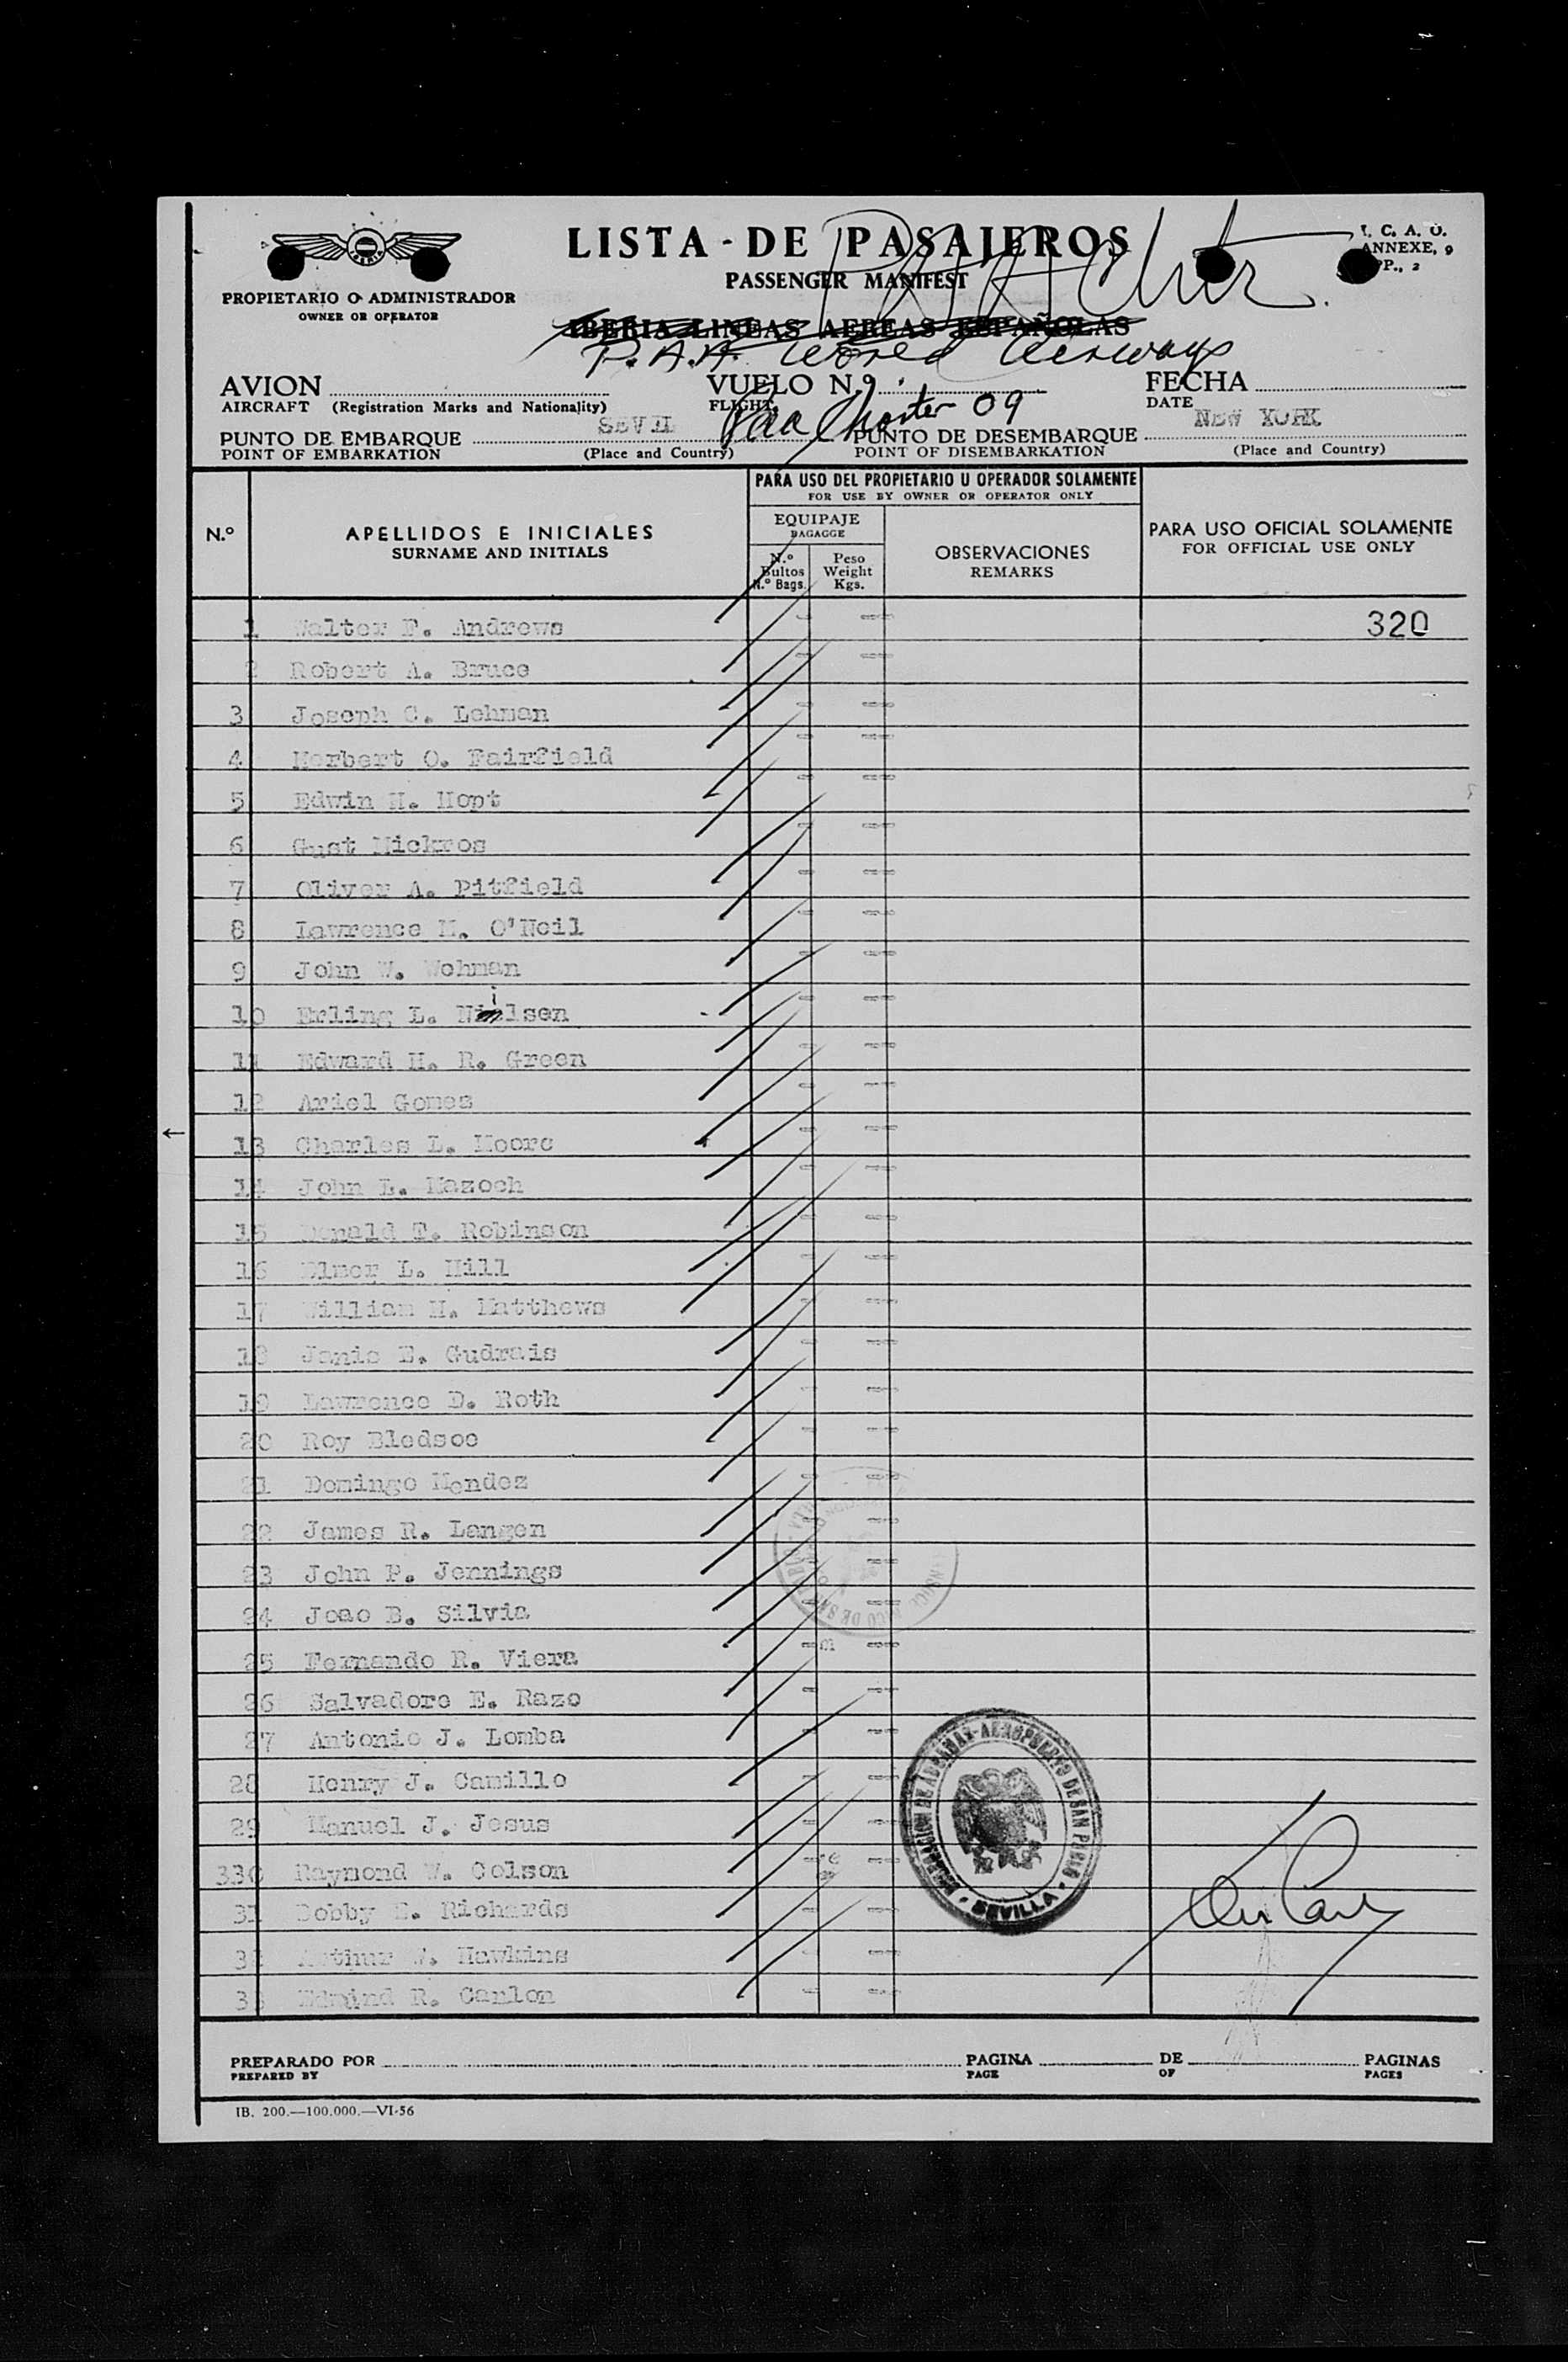 LISTA - DE PASAJEROS
PASSENGER MANIFEST
PAA Chtr.
I. C. A. O.
ANNEXE, 9
PP., 2
IBERIA
PROPIETARIO O ADMINISTRADOR
OWNER OR OPERATOR
IBERIA LINEAS AEREAS ESPAÑOLAS
P.A.A. World Airways
AVION VUELO N.º FECHA
AIRCRAFT (Registration Marks and Nationality) FLIGHT Paa Charter 09 DATE
SEVIL NEW YORK
PUNTO DE EMBARQUE PUNTO DE DESEMBARQUE
POINT OF EMBARKATION (Place and Country) POINT OF DISEMBARKATION (Place and Country)
PARA USO DEL PROPIETARIO U OPERADOR SOLAMENTE
FOR USE BY OWNER OR OPERATOR ONLY
N.º APELLIDOS E INICIALES
SURNAME AND INITIALS
EQUIPAJE
BAGAGGE
N.º Bultos
N.º Bags.
Peso
Weight
Kgs.
OBSERVACIONES
REMARKS
PARA USO OFICIAL SOLAMENTE
FOR OFFICIAL USE ONLY
1 Walter F. Andrews 320
2 Robert A. Bruce
3 Joseph C. Lehman
4 Herbert O. Fairfield
5 Edwin H. Hopt
6 Gust Mickros
7 Oliver A. Pitfield
8 Lawrence M. O'Neil
9 John W. Wohman
10 Erling L. Nielsen
11 Edward H. R. Green
12 Ariel Gomes
13 Charles L. Moore
14 John L. Mazoch
15 Donald T. Robinson
16 Elmer L. Hill
17 William H. Matthews
18 Janis E. Gudrais
19 Lawrence D. Roth
20 Roy Bledsoe
21 Domingo Mendez
22 James R. Langen
23 John P. Jennings
24 Joao B. Silvia
25 Fernando R. Viera
26 Salvadore E. Razo
27 Antonio J. Lomba
28 Henry J. Camillo
29 Manuel J. Jesus
330 Raymond W. Colson
31 Bobby E. Richards
32 Arthur W. Hawkins
33 Edmind R. Canlon
AEROPUERTO DE SAN PABLO - SEVILLA
PREPARADO POR PAGINA DE PAGINAS
PREPARED BY PAGE OF PAGES
IB. 200.—100.000.—VI-56